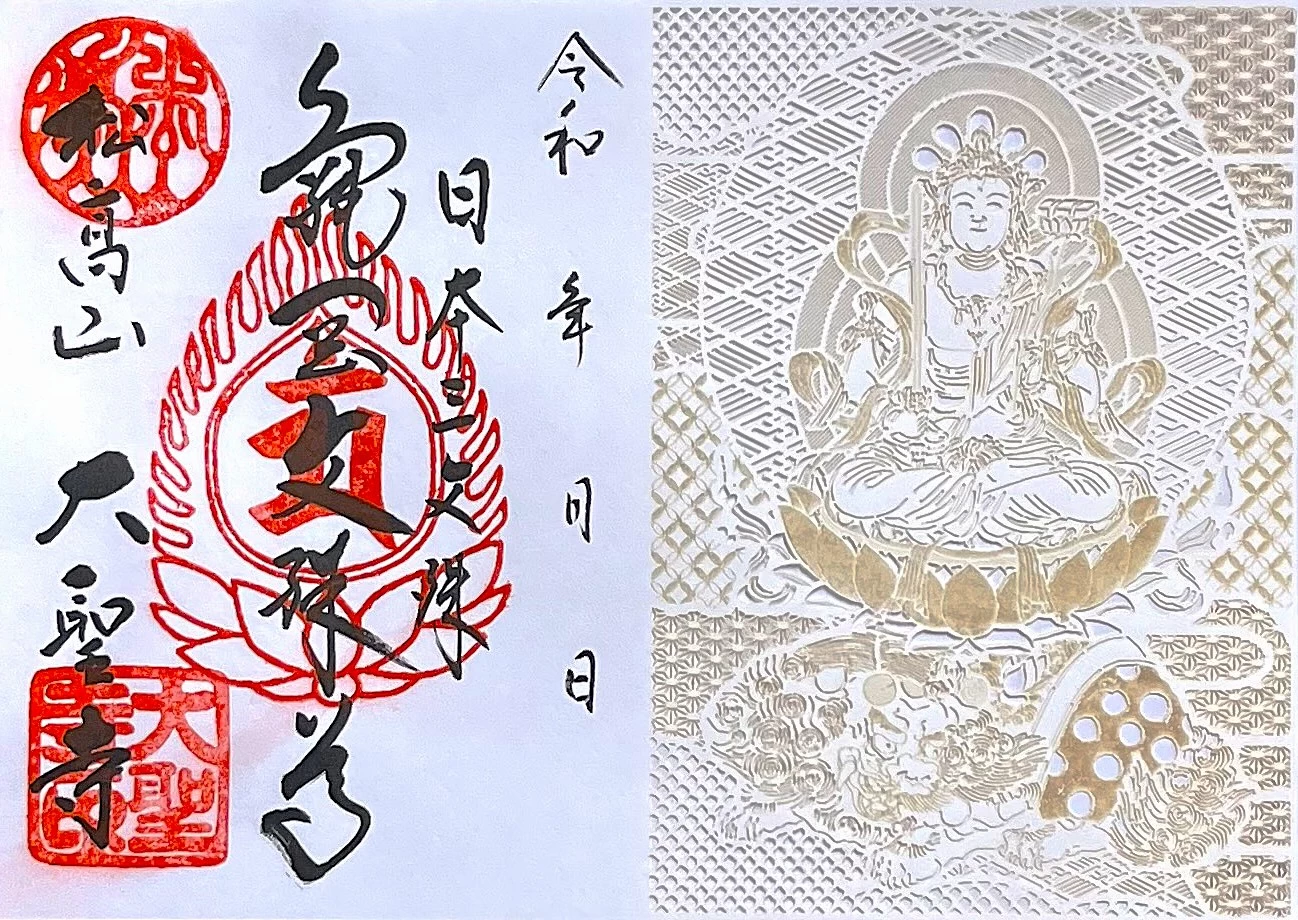 令和 年 月 日
日本三文殊
亀岡文殊尊
松高山
大聖寺
大聖寺印